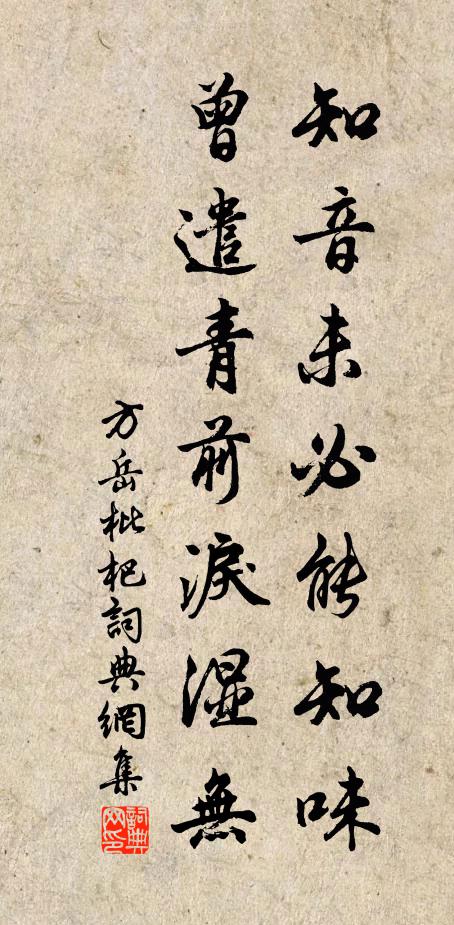 知音未必能知味
曾遣青前淚湿無
方岳枇杷詞典網集
詞典网印